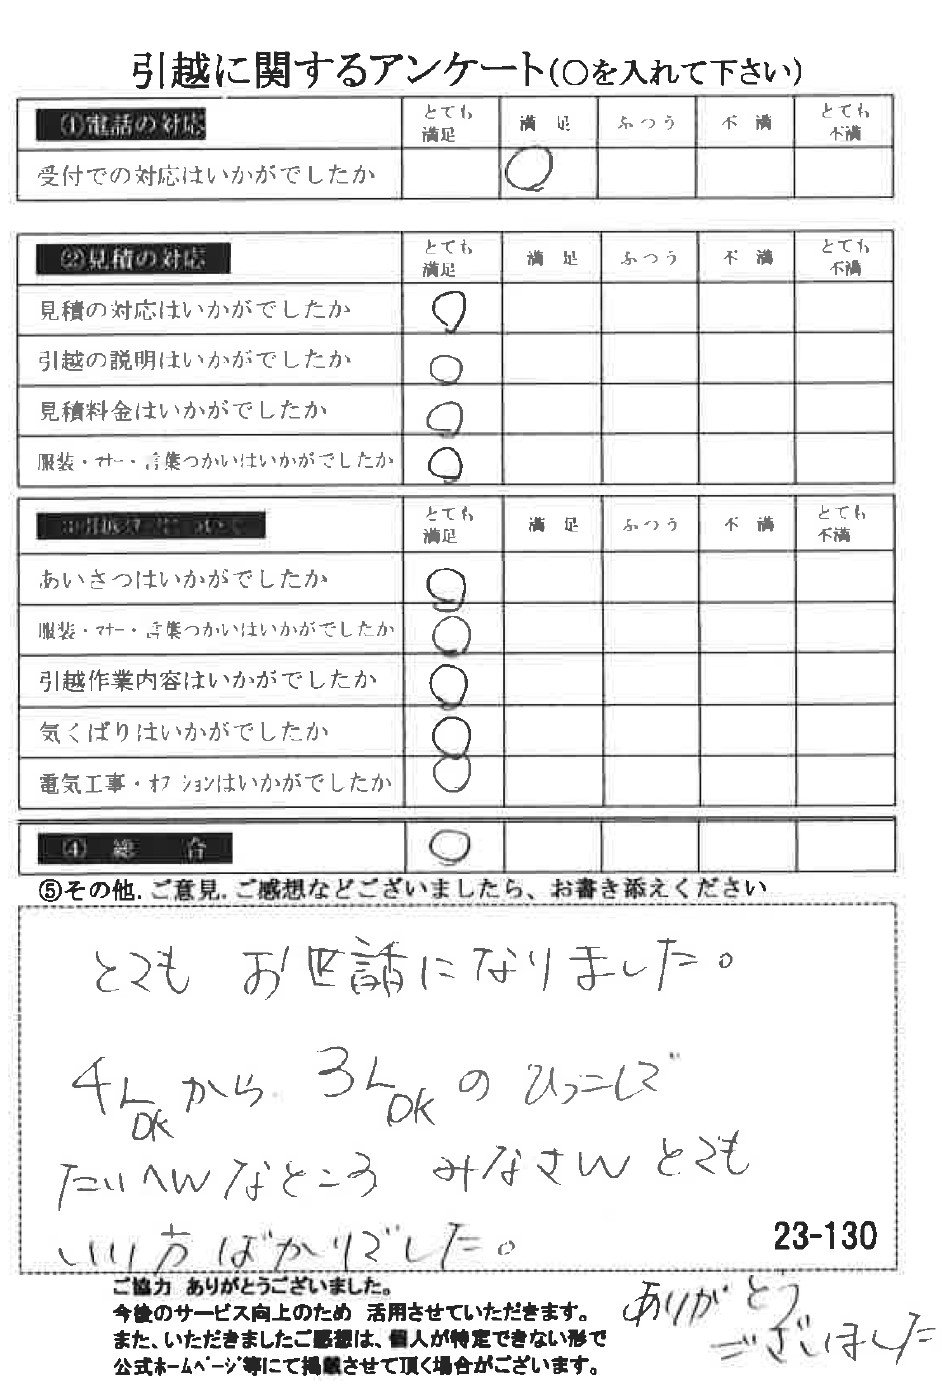 引越に関するアンケート(○を入れて下さい)
①電話の対応 とても満足 満足 ふつう 不満 とても不満
受付での対応はいかがでしたか
②見積の対応 とても満足 満足 ふつう 不満 とても不満
見積の対応はいかがでしたか
引越の説明はいかがでしたか
見積料金はいかがでしたか
服装・マナー・言葉つかいはいかがでしたか
とても満足 満足 ふつう 不満 とても不満
あいさつはいかがでしたか
服装・マナー・言葉つかいはいかがでしたか
引越作業内容はいかがでしたか
気くばりはいかがでしたか
電気工事・オプションはいかがでしたか
④総合
⑤その他.ご意見.ご感想などございましたら、お書き添えください
とてもお世話になりました。
4LDKから3LDKのひっこしで
たいへんなところ みなさんとても
いい方ばかりでした。
23-130
ご協力 ありがとうございました。
今後のサービス向上のため 活用させていただきます。
また、いただきましたご感想は、個人が特定できない形で
公式ホームページ等にて掲載させて頂く場合がございます。
ありがとう
ございました